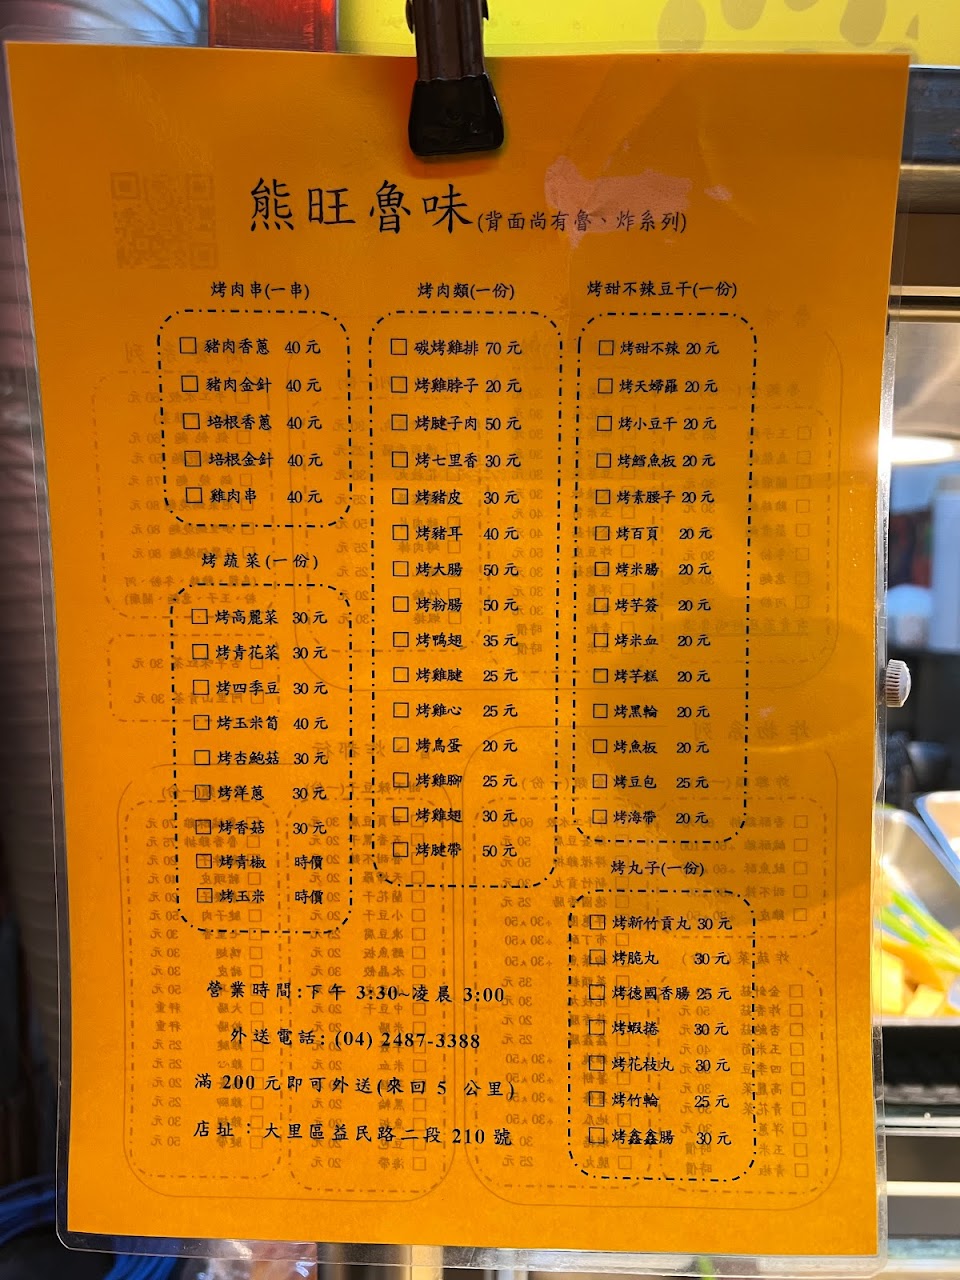 熊旺魯味(背面尚有魯、炸系列)
烤肉串(一串)
豬肉香蔥 40元
豬肉金針 40元
培根香蔥 40元
培根金針 40元
雞肉串 40元
烤蔬菜(一份)
烤高麗菜 30元
烤青花菜 30元
烤四季豆 30元
烤玉米筍 40元
烤杏鮑菇 30元
烤洋蔥 30元
烤香菇 30元
烤青椒 時價
烤玉米 時價
烤肉類(一份)
碳烤雞排 70元
烤雞脖子 20元
烤腱子肉 50元
烤七里香 30元
烤豬皮 30元
烤豬耳 40元
烤大腸 50元
烤粉腸 50元
烤鴨翅 35元
烤雞腱 25元
烤雞心 25元
烤鳥蛋 20元
烤雞腳 25元
烤雞翅 30元
烤腱帶 50元
烤甜不辣豆干(一份)
烤甜不辣 20元
烤天婦羅 20元
烤小豆干 20元
烤鱈魚板 20元
烤素腰子 20元
烤百頁 20元
烤米腸 20元
烤芋簽 20元
烤米血 20元
烤芋糕 20元
烤黑輪 20元
烤魚板 20元
烤豆包 25元
烤海帶 20元
烤丸子(一份)
烤新竹貢丸 30元
烤脆丸 30元
烤德國香腸 25元
烤蝦捲 30元
烤花枝丸 30元
烤竹輪 25元
烤鑫鑫腸 30元
營業時間:下午 3:30~凌晨 3:00
外送電話: (04) 2487-3388
滿 200 元即可外送(來回 5 公里)
店址：大里區益民路二段 210 號